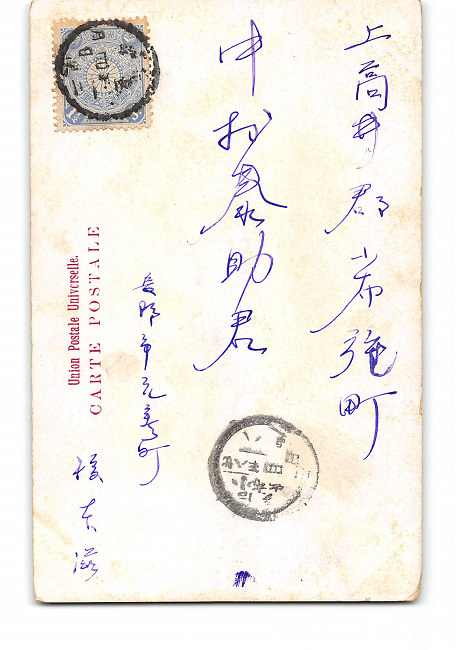 上高井郡小布施町
中村泰助君
長野市元善町
Union Postale Universelle.
CARTE POSTALE